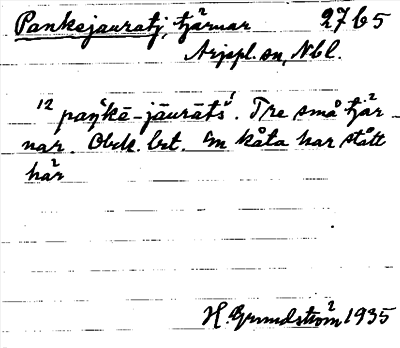 Pankejauratj, tjärnar 27 b 5
Arjepl. sn, Nbl.
12 paŋ́kē-jāurātś. Tre små tjär-
nar. Obek. bet. En kåta har stått
här
H. Grundström 1935